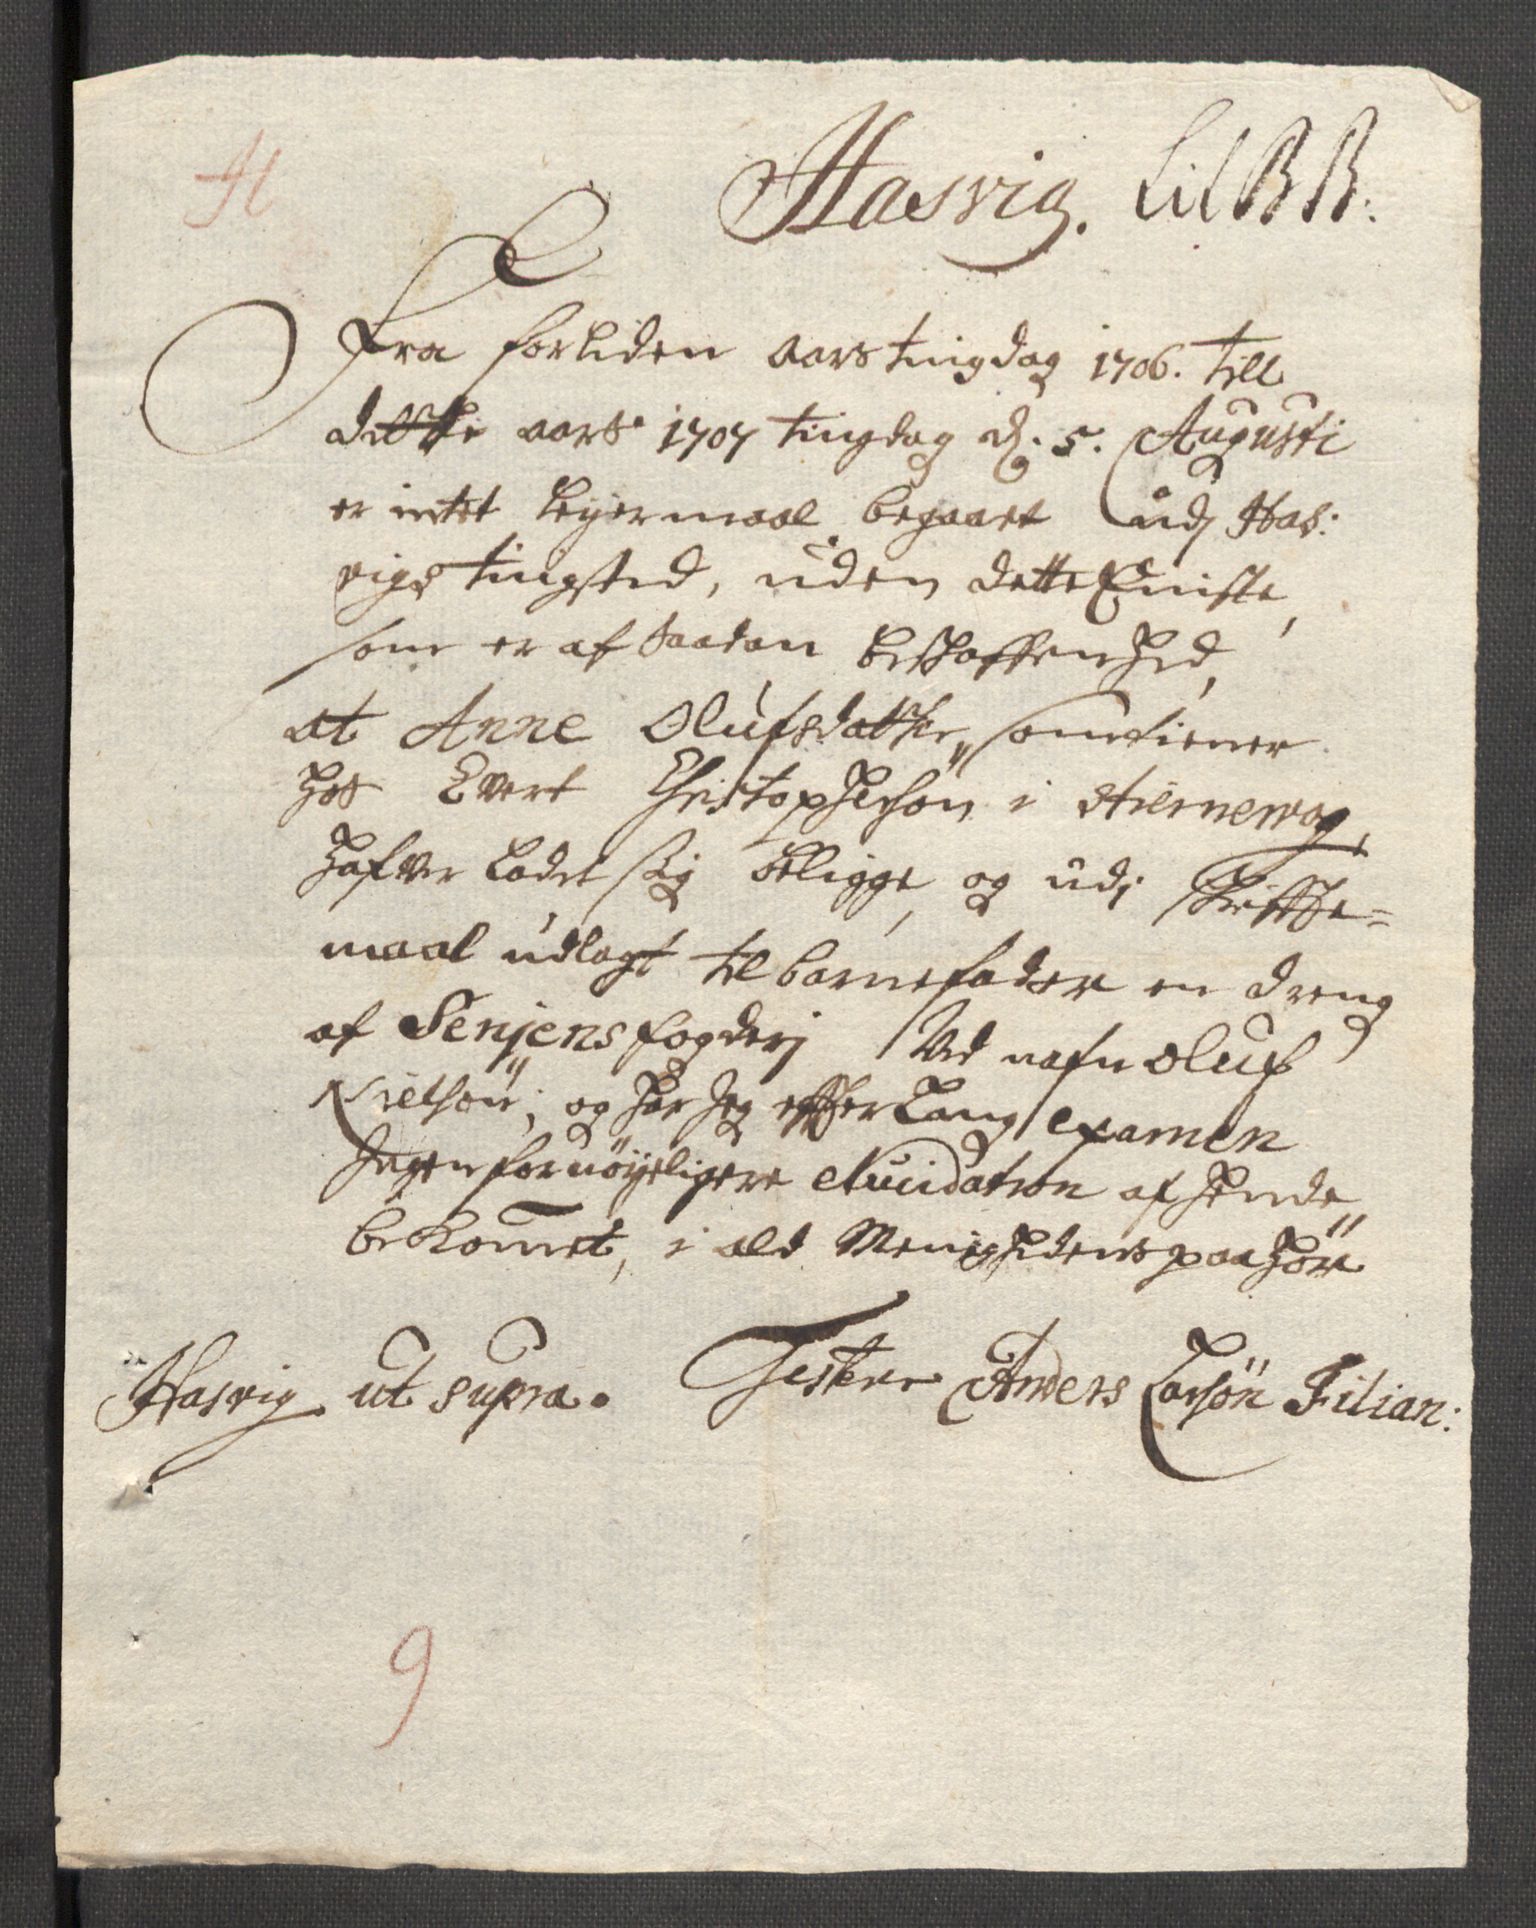 H
Hasvig. Lit BB:
Fra forliden aars tingdag 1706. till
dette aars 1707 tingdag d. 5. Augusti
er intet leyermaal begaaet udj Has:
vigs tingsted, uden dette Eniste,
som er af saadan beskaffenhed,
at Anne Olufsdatter, som tiener
hos Evert Christophersøn i
hafver ladet sig beligge, og udj skrifte-
maal udlagt til barnefader en dreng
af Senjens fogderj Ved nafn Oluf
Nielsøn, og har Jeg effter lang examen
Ingen fornøyeligere elucidation af hende
bekommet, i ald Menighedens paahør
Hasvig ut supra. Testerer Anders Larsøn Filian:
9